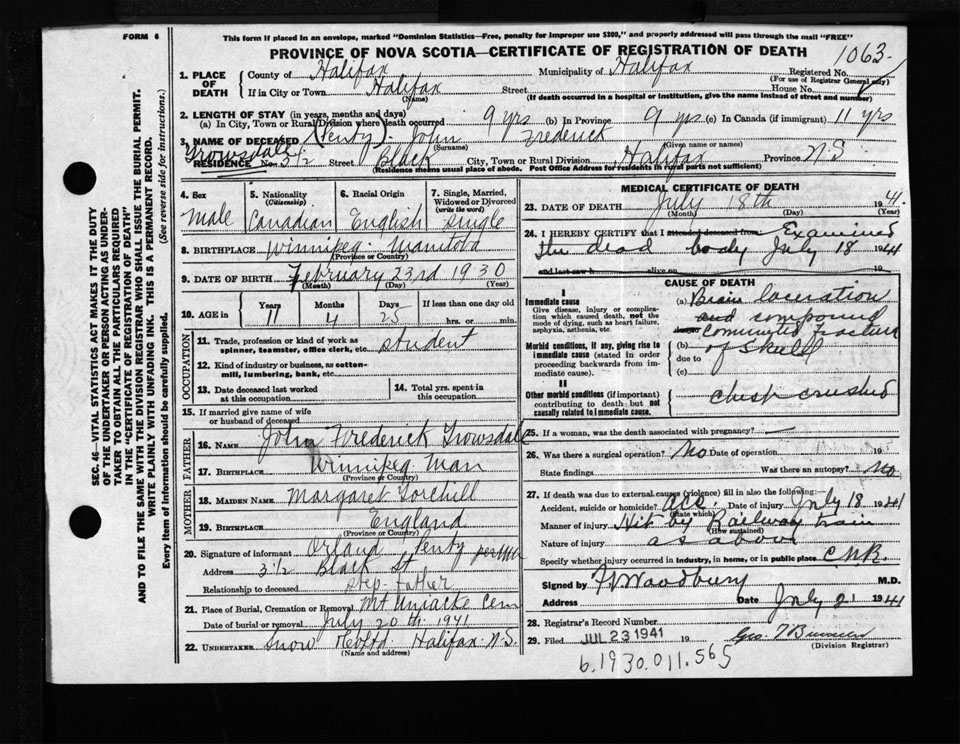 FORM 6
This form if placed in an envelope, marked "Dominion Statistics—Free, penalty for improper use $300," and properly addressed will pass through the mail "FREE"
PROVINCE OF NOVA SCOTIA—CERTIFICATE OF REGISTRATION OF DEATH
1063
1. PLACE OF DEATH
County of Halifax Municipality of Halifax Registered No.
(For use of Registrar General only)
If in City or Town Halifax Street House No.
(Name) (If death occurred in a hospital or institution, give the name instead of street and number)
2. LENGTH OF STAY (in years, months and days)
(a) In City, Town or Rural Division where death occurred 9 yrs (b) In Province 9 yrs (c) In Canada (if immigrant) 11 yrs
3. NAME OF DECEASED (Penty) John Frederick
Trowsdale (Surname) (Given name or names)
RESIDENCE No. 3 1/2 Street Black City, Town or Rural Division Halifax Province N.S
(Residence means usual place of abode. Post Office Address for residents in rural parts not sufficient)
4. Sex
Male
5. Nationality
(Citizenship)
Canadian
6. Racial Origin
English
7. Single, Married, Widowed or Divorced
(write the word)
Single
8. BIRTHPLACE Winnipeg Manitoba
(Province or Country)
9. DATE OF BIRTH February 23rd 1930
(Month) (Day) (Year)
10. AGE in
Years Months Days If less than one day old
11 4 25 hrs. or min.
OCCUPATION
11. Trade, profession or kind of work as spinner, teamster, office clerk, etc. student
12. Kind of industry or business, as cotton-mill, lumbering, bank, etc.
13. Date deceased last worked at this occupation
14. Total yrs. spent in this occupation
15. If married give name of wife or husband of deceased
FATHER
16. NAME John Frederick Trowsdale
17. BIRTHPLACE Winnipeg Man
(Province or Country)
MOTHER
18. MAIDEN NAME Margaret
19. BIRTHPLACE England
(Province or Country)
20. Signature of informant Orland Penty
Address 3 1/2 Black St
Relationship to deceased step-father
21. Place of Burial, Cremation or Removal Mt Uniacke Cem
Date of burial or removal July 20th 1941
22. UNDERTAKER Snow & Co Ltd Halifax N.S.
(Name and address)
MEDICAL CERTIFICATE OF DEATH
23. DATE OF DEATH July 18th 194
(Month) (Day) (Year)
24. I HEREBY CERTIFY that I attended deceased from Examined
the dead body July 18 1941
and last saw h alive on 19
CAUSE OF DEATH
I
Immediate cause
Give disease, injury or complication which caused death, not the mode of dying, such as heart failure, asphyxia, asthenia, etc.
(a) Brain laceration
and compound
due to Comminuted Fracture
Morbid conditions, if any, giving rise to immediate cause (stated in order proceeding backwards from immediate cause).
(b) of Skull
due to
(c)
II
Other morbid conditions (if important) contributing to death but not causally related to immediate cause.
Chest crushed
25. If a woman, was the death associated with pregnancy?
26. Was there a surgical operation? No Date of operation 19
State findings Was there an autopsy? No
27. If death was due to external causes (violence) fill in also the following:—
Accident, suicide or homicide? acc. Date of injury July 18 1941
(State which)
Manner of injury Hit by Railway train
(How sustained)
Nature of injury as above
Specify whether injury occurred in industry, in home, or in public place C.N.R.
Signed by Woodbury M.D.
Address Date July 21 1941
28. Registrar's Record Number
29. Filed JUL 23 1941 19
(Division Registrar)
6.1930.011.565
SEC. 46—VITAL STATISTICS ACT MAKES IT THE DUTY OF THE UNDERTAKER OR PERSON ACTING AS UNDERTAKER TO OBTAIN ALL THE PARTICULARS REQUIRED IN THE "CERTIFICATE OF REGISTRATION OF DEATH" AND TO FILE THE SAME WITH THE DIVISION REGISTRAR WHO SHALL ISSUE THE BURIAL PERMIT.
WRITE PLAINLY WITH UNFADING INK. THIS IS A PERMANENT RECORD.
Every item of information should be carefully supplied. (See reverse side for instructions.)